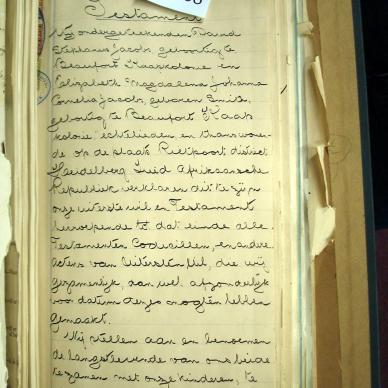 Testament
Wij ondergeteekenden Frans
Stephanus Jacobs, geboortig te
Beaufort Kaapkolonie en
Elizabeth Magdalena Johanna
Cornelia Jacobs, geboren Smit,
geboortig te Beaufort Kaap
kolonie echtelieden, en thans wonen-
de op de plaats Rietpoort district
Heidelberg Zuid Afrikaansche
Republiek verklaren dit te zijn
onze uiterste wil en Testament
herroepende tot dat einde alle
Testamenten Codicillen, en andere
actens van uitersten wil, die wij
gezamenlijk, dan wel afzonderlijk
voor datum dezes mogten hebben
gemaakt.
Wij stellen aan en benoemen
de langstlevende van ons beide
te zamen met onze kinderen, te